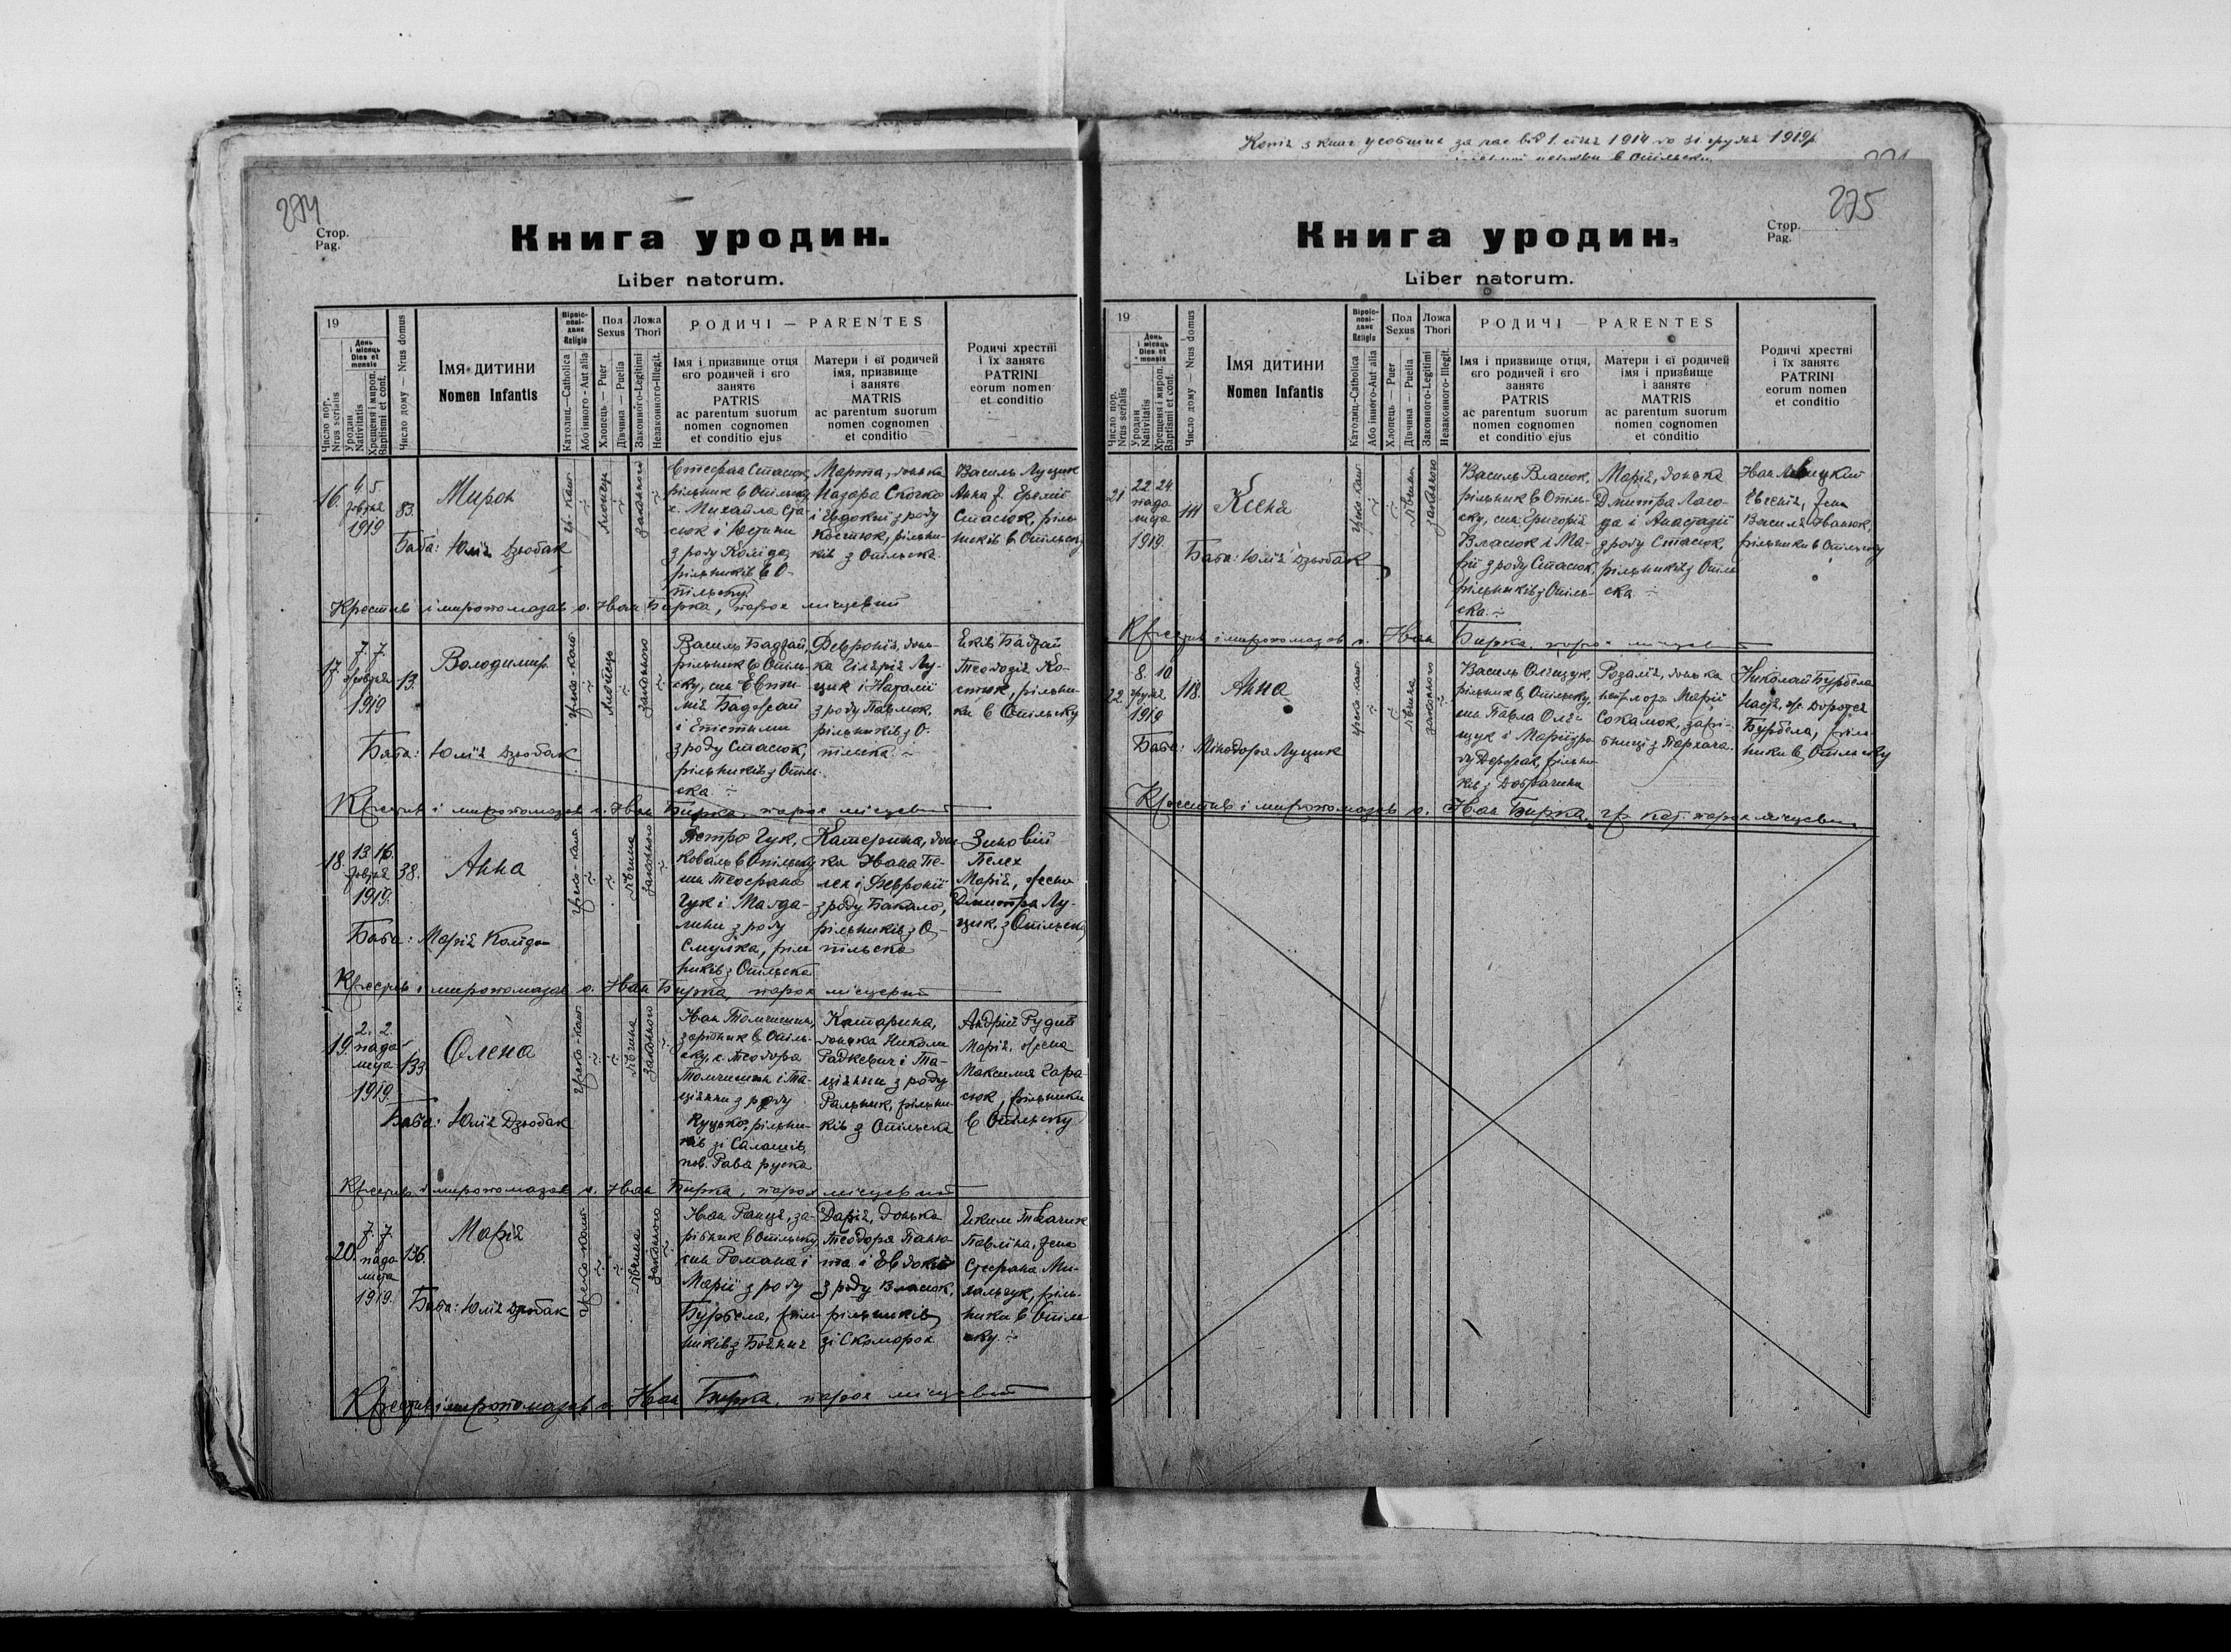 Копія з книг усобших за час від 1. січня 1914 до 31 грудня 1919р.
274
Стор.
Pag.
Книга уродин.
Liber natorum.
19
Число пор.
Nrus serialis
День і місяць
Dies et mensis
Уродин
Nativitatis
Хрещеня і миропом.
Baptismi et conf.
Число дому — Nrus domus
Імя дитини
Nomen Infantis
Віроісповіданє
Religio
Католиц.—Catholica
Або інного - Aut alia
Пол
Sexus
Хлопець — Puer
Дівчина — Puella
Ложа
Thori
Законного-Legitimi
Незаконного-Illegit.
РОДИЧІ — PARENTES
Імя і призвище отця
єго родичей і єго
занятє
PATRIS
ac parentum suorum
nomen cognomen
et conditio ejus
Матери і єї родичей
імя, призвище
і занятє
MATRIS
ac parentum suorum
nomen cognomen
et conditio
Родичі хрестні
і їх занятє
PATRINI
eorum nomen
et conditio
16.
4. 5
жовтня
1919
83.
Мирон
гр-кат
хлопець
законного
Стефан Стасюк,
рільник в Опільску
с. Михайла Ста-
сюк і Юстини
з роду Коліда,
рільників в О-
пільску
Марта, донька
Назара Скочко
і Евдокиї з роду
Костюк, рільни-
ків з Опільска
Василь Луцик
Анна ж. Еремії
Стасюк, ріль-
ників в Опільску
Баба: Юлія Дзюбак
Крестив і миропомазав о. Іван Бирка, парох місцевий
17.
7. 7.
жовтня
1919
13.
Володимир
греко-кат
хлопець
законного
Василь Баджай,
рільник в Опіль-
ску, син Евти-
мія Баджай
і Епістими
з роду Стасюк,
рільників з Опіль-
ска
Февронія, донь-
ка Гілярія Лу-
цик і Наталії
з роду Павлюк,
рільників з О-
пільска
Яків Баджай
Теодозія Ко-
стюк, рільни-
ки в Опільску
Баба: Юлія Дзюбак
Крестив і миропомазав о. Іван Бирка, парох місцевий
18.
13. 16.
жовтня
1919.
38.
Анна
греко-кат
дівчина
законного
Петро Гук,
коваль в Опільску
син Теофана
Гук і Магда-
лини з роду
Смулка, ріль-
ників з Опільска
Катерина, донь-
ка Івана Пе-
лех і Февронії
з роду Бакало,
рільників з О-
пільска
Зиновій
Пелех
Марія, жена
Дмитра Лу-
цик, з Опільска
Баба: Марія Коліда
Крестив і миропомазав о. Іван Бирка, парох місцевий
19.
2. 2.
падо-
листа
1919.
133
Олена
греко-кат
дівчина
законного
Іван Томчишин,
зарібник в Опіль-
ску, с. Теодора
Томчишин і Та-
ціянни з роду
Куцько, рільни-
ків зі Салашів,
пов. Рава руска
Катарина,
донька Николи
Радкевич і Та-
ціянни з роду
Ральник, рільни-
ків з Опільска
Андрій Рудий
Марія, жена
Максима Гара-
сюк, рільники
в Опільску
Баба: Юлія Дзюбак
Крестив і миропомазав о. Іван Бирка, парох місцевий
20.
7. 7.
падо-
листа
1919.
136.
Марія
греко-кат
дівчина
законного
Іван Ранця, за-
рібник в Опільску,
син Романа і
Марії з роду
Бурбела, ріль-
ників з Боянич
Дарія, донька
Теодора Паню-
та і Евдокії
з роду Власюк,
рільників
зі Скоморох
Яким Ткачик
Павліна, жена
Стефана Ми-
хальчук, ріль-
ники в Опіль-
ску.
Баба: Юлія Дзюбак
Крестив і миропомазав о. Іван Бирка, парох місцевий
275
Стор.
Pag.
Книга уродин.
Liber natorum.
19
Число пор.
Nrus serialis
День і місяць
Dies et mensis
Уродин
Nativitatis
Хрещеня і миропом.
Baptismi et conf.
Число дому — Nrus domus
Імя дитини
Nomen Infantis
Віроісповіданє
Religio
Католиц.-Catholica
Або інного-Aut alia
Пол
Sexus
Хлопець — Puer
Дівчина — Puella
Ложа
Thori
Законного-Legitimi
Незаконного-Illegit.
РОДИЧІ — PARENTES
Імя і призвище отця,
єго родичей і єго
занятє
PATRIS
ac parentum suorum
nomen cognomen
et conditio ejus
Матери і єї родичей
імя і призвище
і занятє
MATRIS
ac parentum suorum
nomen cognomen
et conditio
Родичі хрестні
і їх занятє
PATRINI
eorum nomen
et conditio
21
22. 24.
падо
листа
1919.
111
Ксеня
греко-кат
дівчина
законного
Василь Власюк,
рільник в Опіль-
ску, син Григорія
Власюк і Ма-
рії з роду Стасюк,
рільників з Опіль-
ска.
Марія, донька
Дмитра Лаго-
да і Анастазії
з роду Стасюк,
рільників з Опіль
ска
Іван Левицкий
Евгенія, жена
Василя Іванюк,
рільники в Опільску
Баба: Юлія Дзюбак
Крестив і миропомазав о. Іван Бирка, парох місцевий
22.
8. 10
грудня
1919
118.
Анна
греко-кат
дівчина
законного
Василь Оліщук,
рільник в Опільску,
син Павла Олі-
щук і Марії з ро-
ду Дорожак, рільни-
ків з Добрачина
Розалія, донька
непрлюбна Марії
Сокамок, зарі-
бниці з Пархача.
Николай Бурбела
Настя, ж. Доротея
Бурбела, ріль-
ники в Опільску
Баба: Мінодора Луцик
Крестив і миропомазав о. Іван Бирка, гр. кат. парох місцевий